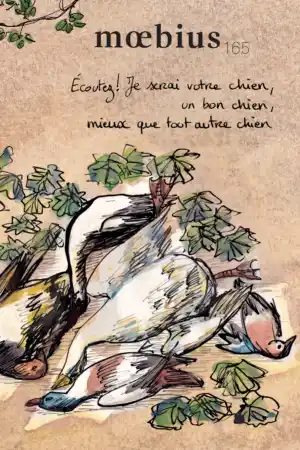 mœbius 165
Écoutez! Je serai votre chien,
un bon chien,
mieux que tout autre chien